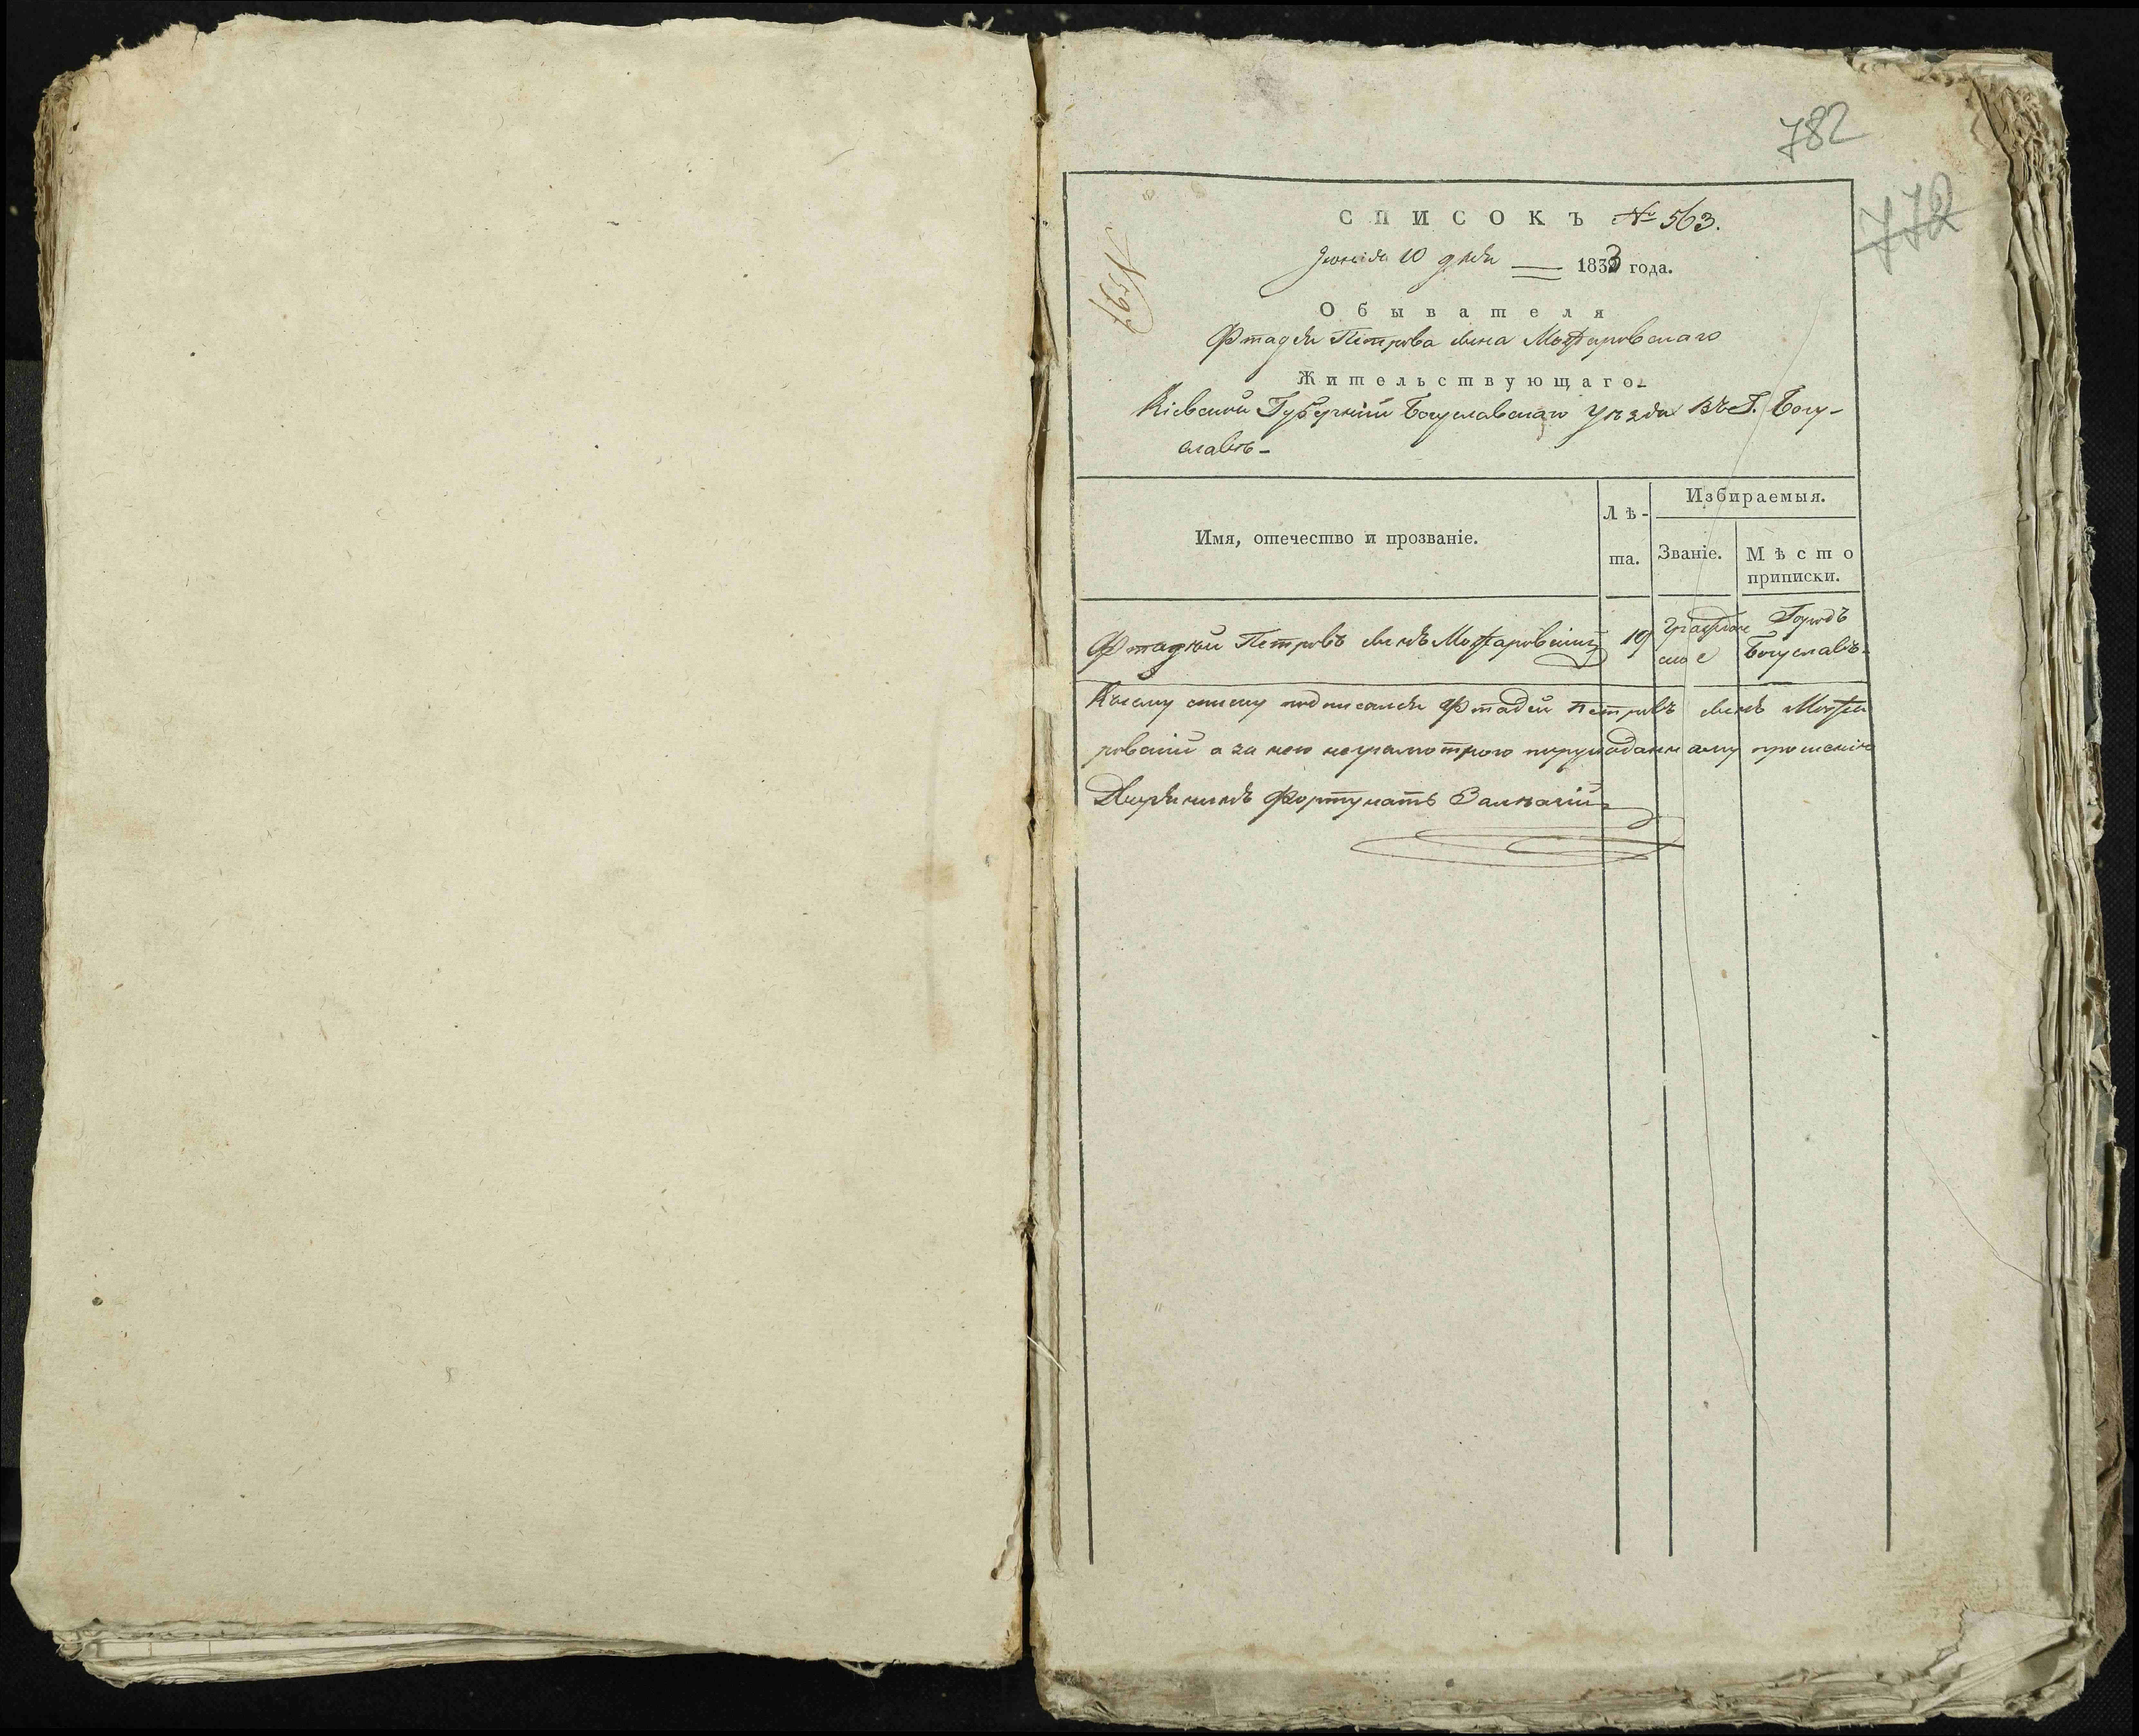 782
772
СПИСОКЪ № 563.
Іюнія 10 дня 1833 года.
Обывателя
Фтадея Петрова сынаМожаровскаго
Жительствующаго
Кіевской Губерніи Богуславскаго уѣзда въ Г. Богу-
славѣ
Имя, отечество и прозваніе.
Лѣ-
та.
Избираемыя.
Званіе.
Мѣсто
приписки.
Фтадѣй Петровъ сынъ Можаровскій 19 Граждан
ское
Городъ
Богуславъ
Къ сему списку подписался Фтадей Петровъ сынъ Можа
ровскій а за него неграмотного прошенію
Дворянинъ Фортунатъ